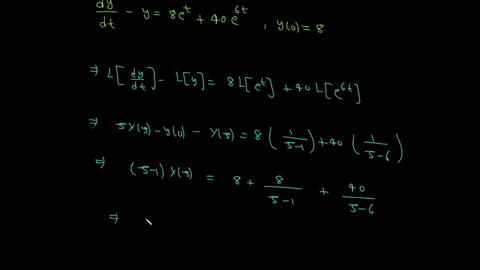 dy/dt - y = 8e^t + 40e^{6t} , y(0) = 8
⇒ L[dy/dt] - L[y] = 8L[e^t] + 40L[e^{6t}]
⇒ sY(s) - y(0) - Y(s) = 8(1/(s-1)) + 40(1/(s-6))
⇒ (s-1) Y(s) = 8 + 8/(s-1) + 40/(s-6)
⇒